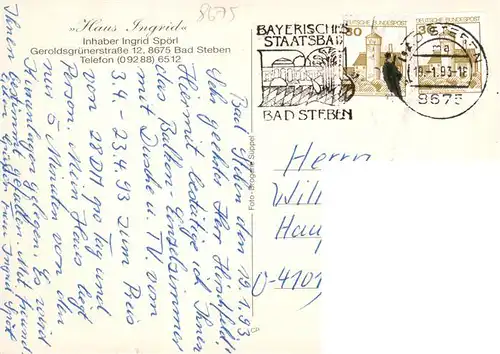 8675
»Haus Ingrid«
Inhaber Ingrid Spörl
Geroldsgrünerstraße 12, 8675 Bad Steben
Telefon (09288) 6512
Bad Steben den 19.1.93
Sehr geehrter Herr Hirschfeld!
Hiermit bestätige ich Ihnen
das Balkon Einzelzimmer
mit Dusche u. TV. vom
3.4. - 23.4.93 zum Preis
von 28 DM pro Tag und
Person. Mein Haus liegt
nur 5 Minuten von den
Kuranlagen gelegen. Es wird
Ihnen bestimmt gefallen. Mit freundl.
Grüßen Frau Ingrid Spörl
Foto-Drogerie Süppel
BAYERISCHES
STAATSBAD
BAD STEBEN
DEUTSCHE BUNDESPOST
30
DEUTSCHE BUNDESPOST
BAD STEBEN
ma
19.-1.93-18
8675
Herrn
Haup
O-4101